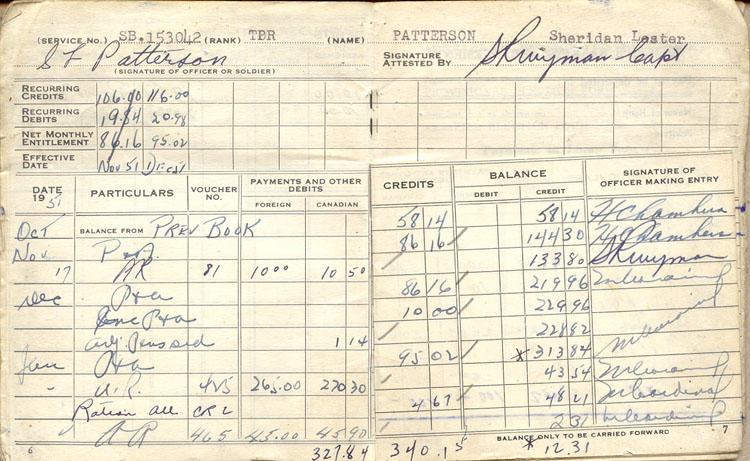 (SERVICE NO.) SB.153042 (RANK) TPR (NAME) PATTERSON Sheridan Lester
S L Patterson
(SIGNATURE OF OFFICER OR SOLDIER)
SIGNATURE ATTESTED BY Capt
RECURRING CREDITS 106.00 116.00
RECURRING DEBITS 19.84 20.98
NET MONTHLY ENTITLEMENT 86.16 95.02
EFFECTIVE DATE Nov 51 1 Dec 51
DATE 1951 PARTICULARS VOUCHER NO. PAYMENTS AND OTHER DEBITS FOREIGN CANADIAN CREDITS BALANCE DEBIT CREDIT SIGNATURE OF OFFICER MAKING ENTRY
Oct BALANCE FROM PREV BOOK 58 14 58 14 H Chambers
Nov P&A 86 16 144 30 H Chambers
17 AR 81 10 00 10 50 133 80
Dec P&A 86 16 219 96
P&A 10 00 229 96
Adj 1 14 228 82
Jan P&A 95 02 * 313 84
" A.R. 425 265.00 270 30 43 54
Ration All CR 2 4 67 48 21
AR 465 45.00 45 90 2 31
6 327.84 340.15 BALANCE ONLY TO BE CARRIED FORWARD * 12.31 7